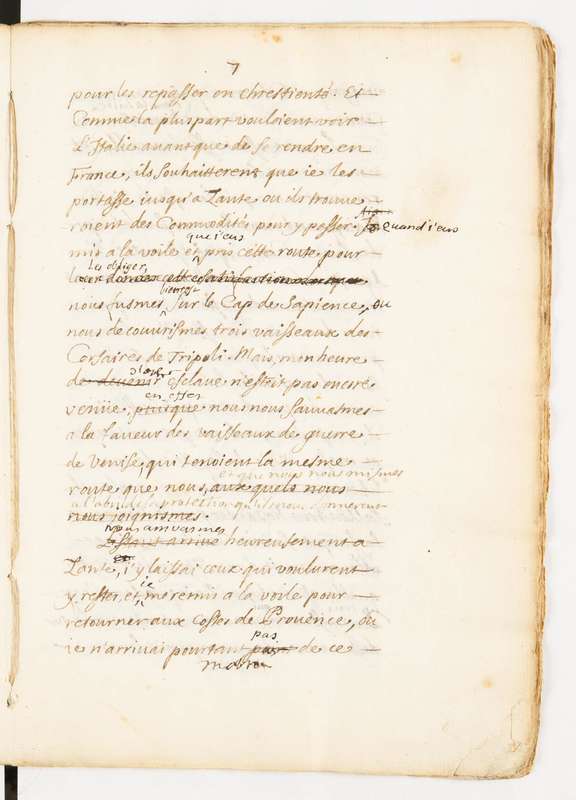 7
pour les repasser en chrestienté. Et
Comme la pluspart vouloient voir
L'Italie auantque de se rendre en
France, ils souhaitterent que ie les
portasse iusqu'a Zante ou ils trouue
roient des Commodités pour y passer. Quand i'eus
que i'eus
mis a la voile et pris cette route, pour
Les obliger,
leur donner cette satisfaction
bientost
nous fusmes sur le Cap de Sapience, ou
nous découurismes trois vaisseaux des
Corsaires de Tripoli. Mais mon heure
d'estre
de deuenir esclaue n'estoit pas encore
en effet
venüe, puisque nous nous sauuasmes
a la faueur des vaisseaux de guerre
de Venise, qui tenoient la mesme
et que nous nous mismes
route que nous, aux quels nous
a l'abri de la protection qu'ils nous
nous joignismes.
nous arriuasmes
Estant arriué heureusement a
Zante, i'y laissai ceux qui voulurent
ie
y rester, et me remis a la voile pour
retourner aux costes de Prouence, ou
pas
ie n'arriuai pourtant pas de ce